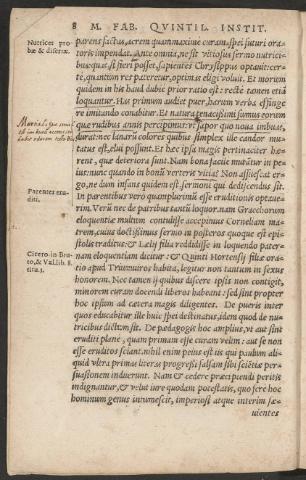 8 M. FAB. QVINTIL. INSTIT.
Nutrices pro
bæ & disertæ.
parens factus, acrem quam maximè curam, spei futuri ora-
toris impendat. Ante omnia, ne sit vitiosus sermo nutrici-
bus: quas, si fieri posset, sapientes Chrysippus optauit: cer-
tè, quantùm res pateretur, optimas eligi voluit. Et morum
quidem in his haud dubiè prior ratio est: rectè tamen etiã
loquantur. Has primùm audiet puer, harum verba effinge
re imitando conabitur. Et natura tenacissimi sumus eorum
que rudibus annis percipimus: vt sapor quo noua imbuas,
durat: nec lanarũ colores quibus simplex ille candor mu-
tatus est, elui possunt. Et hæc ipsa magis pertinaciter hæ-
rent, quæ deteriora sunt. Nam bona facile mutãtur in pe-
ius: nunc quando in bonũ verteris vitia? Non assuescat er-
go, ne dum infans quidem est sermoni qui dediscendus sit.
Parentes eru-
diti.
In parentibus vero quamplurimũ esse eruditionis optaue-
rim. Verũ nec de patribus tantũ loquor. nam Gracchorum
eloquentiæ multum contulisse accepimus Corneliam ma-
trem, cuius doctissimus sermo in posteros quoque est epi-
stolis traditus: & Lælij filia reddidisse in loquendo pater-
Cicero in Bru-
to, & Val. lib. 8.
tit. 3.
nam eloquentiam dicitur: & Quinti Hortensij filiæ ora-
tio apud Triumuiros habita, legitur non tantum in sexus
honorem. Nec tamen ij quibus discere ipsis non contigit,
minorem curam docendi liberos habeant: sed sint propter
hoc ipsum ad cætera magis diligentes. De pueris inter
quos educabitur ille huic spei destinatus, idem quod de nu-
tricibus dictum sit. De pædagogis hoc amplius, vt aut sint
eruditi planè, quam primam esse curam velim: aut se non
esse eruditos sciant. nihil enim peius est iis qui paulum ali-
quid vltra primas literas progressi falsam sibi scientiæ per-
suasionem induerunt. Nam & cedere præcipiendi peritis
indignantur, & velut iure quodam potestatis, quo ferè hoc
hominum genus intumescit, imperiosi atque interim sæ-
uientes